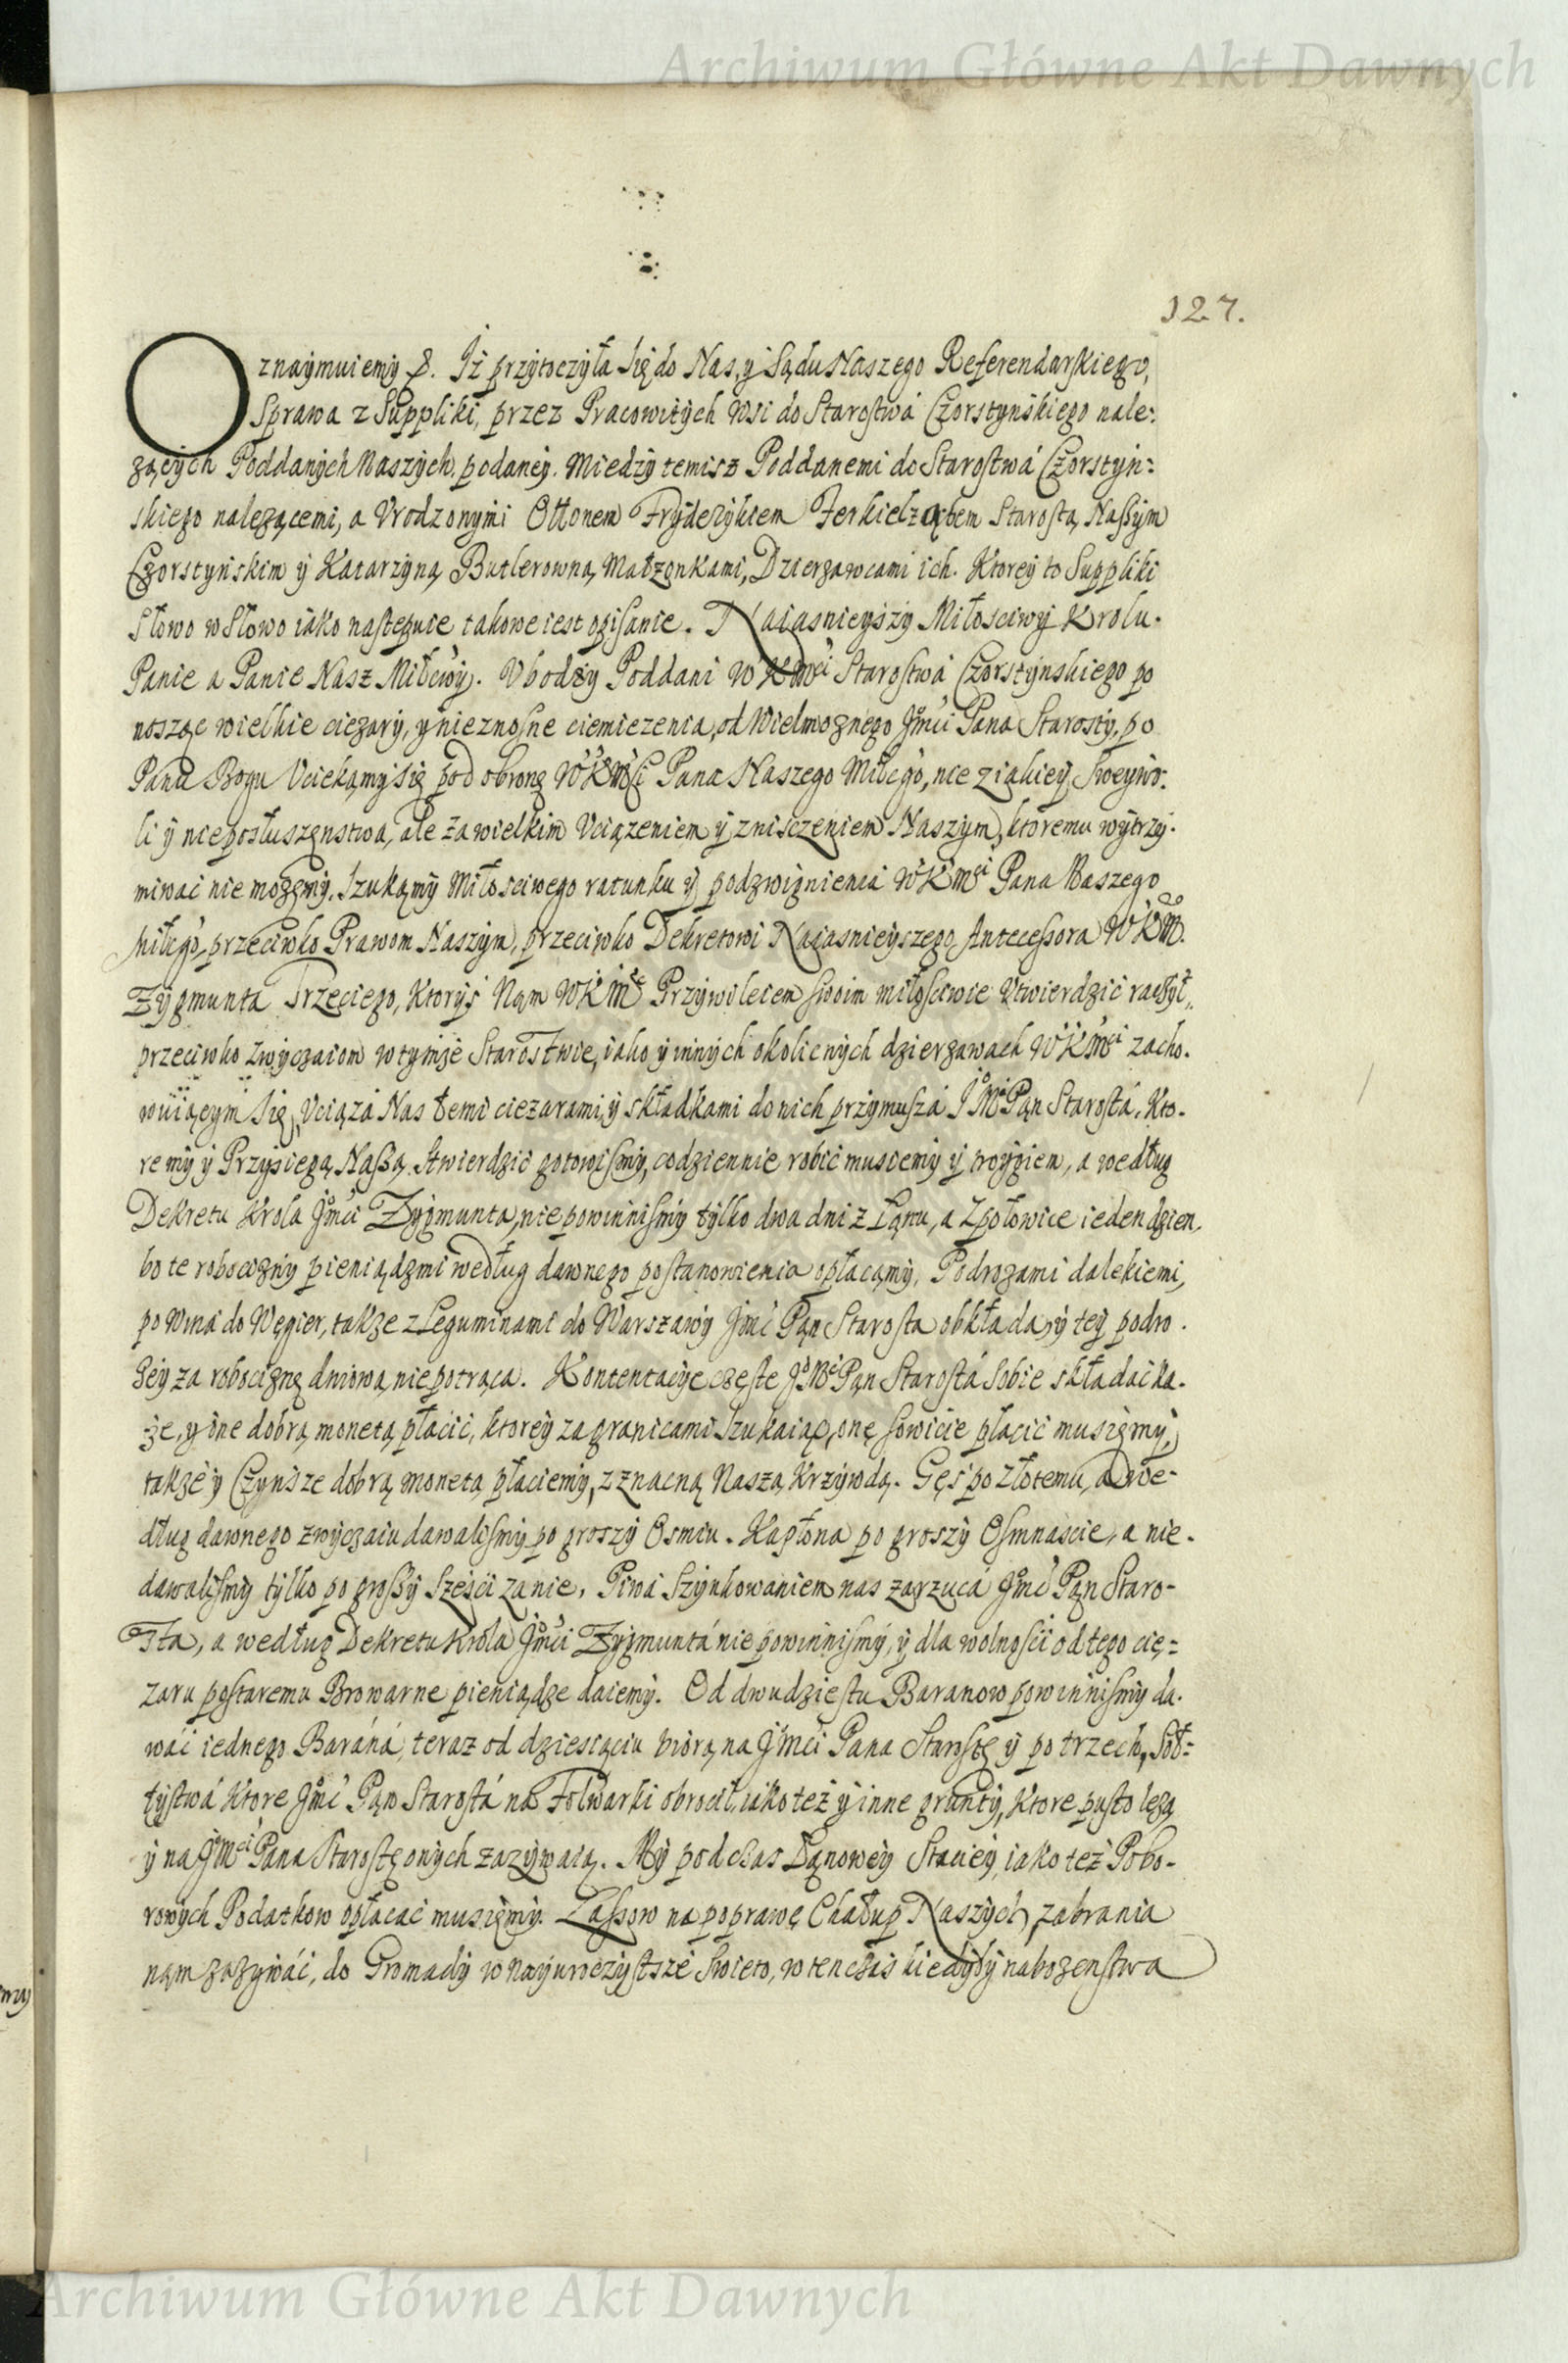 Archiwum Główne Akt Dawnych
127.
Oznaymuiemy &. Iż przytoczyła się do Nas, y Sądu Naszego Referendarskiego,
Sprawa z Suppliki, przez Pracowitych Wsi do Starostwá Czorstynskiego nale:
żących Poddanych Naszych, podaney. Miedzy temisz Poddanemi do Starostwá Czorstyn:
skiego należącemi, a Vrodzonymi Ottonem Fryderykiem Ferkielząbem Starostą Naszym
Czorstynskim y Katarzyną Butlerowną Małżonkami, Dzierzawcami ich. Ktorey to Suppliki
Słowo w Słowo iako nastepuie takowe iest opisanie. Naiasnieyszy Miłosciwy Krolu.
Panie a Panie Nasz Miłćwy. Vbodzy Poddani W K Mći Starostwá Czorstynskiego po
nosząc wielkie ciezary, y nieznosne ciemiezenia, od Wielmożnego Jmći Pana Starosty, po
Panu Bogu Vciekamy się pod obronę W K Mći Pana Naszego Miłćgo, nie z iakiey Swey wo:
li y nieposłuszenstwa, ale za wielkim Vciążeniem y znisczeniem Naszym, ktoremu wytrzy.
miwać nie możemy. Szukamy Miłosciwego ratunku y podzwignienia W K Mći Pana Naszego
Miłćgo, przeciwko Prawom Naszym, przeciwko Dekretowi Naiasnieyszego Antecessora W K M.
Zygmunta Trzeciego, Ktorys Nam W K Mć Przywileiem swoim miłosciwie Vtwierdzić raczył,
przeciwko zwyczaiom w tymże Starostwie, iako y innych okolicnych dzierzawach W K Mći zacho.
wuiącym się, Vciąża Nas temi ciezarami, y składkami do nich przymusza J Mć Pan Starosta. Kto.
re my y Przysiegą Naszą stwierdzić gotowismy, codziennie robić musiemy y woziem, a według
Dekretu Krola Jmći Zygmunta, nie powinnismy tylko dwa dni z Łanu, a z połowice ieden dzien,
bo te robocizny pieniądzmi według dawnego postanowienia opłacamy. Podrozami dalekiemi,
po Wina do Węgier, także z Leguminami do Warszawy Jmć Pan Starosta obkłada, y tey podro.
żey za robociznę dniową nie potrąca. Kontentacye częste J Mć Pan Starosta Sobie składać ka.
że, y one dobrą monetą płacić, ktorey za granicami Szukaiąc, onę sowicie płacić musiemy,
także y Czynsze dobrą monetą płaciemy, z znacną Naszą Krzywdą. Gęś po złotemu, a we-
dług dawnego zwyczaiu dawalismy po groszy Osmiu. Kapłona po groszy Osmnascie, a nie.
dawalismy tylko po groszy Sześci za nie. Piwa Szynkowaniem nas zarzuca Jmć Pan Staro-
sta, a według Dekretu Krola Jmći Zygmunta nie powinnismy, y dla wolnosci od tego cię=
zaru postaremu Browarne pieniądze daiemy. Od dwudziestu Baranow powinnismy da.
wać iednego Barana, teraz od dziesiąciu biorą na Jmći Pana Starostę y po trzech, Soł=
tystwá Ktore Jmć Pan Starosta na Folwarki obrocił, iako też y inne grunty, Ktore pusto leżą
y na Jmći Pana Starostę onych zazywaią. My pod czas Łanowey Staciey, iako też Pobo-
rowych Podatkow opłacać musiemy. Lassow na poprawę Chałup Naszych zabrania
nam zazywać, do Gromady w Nayuroczystsze Swieto, w ten czas kiedyby nabożenstwa
Archiwum Główne Akt Dawnych